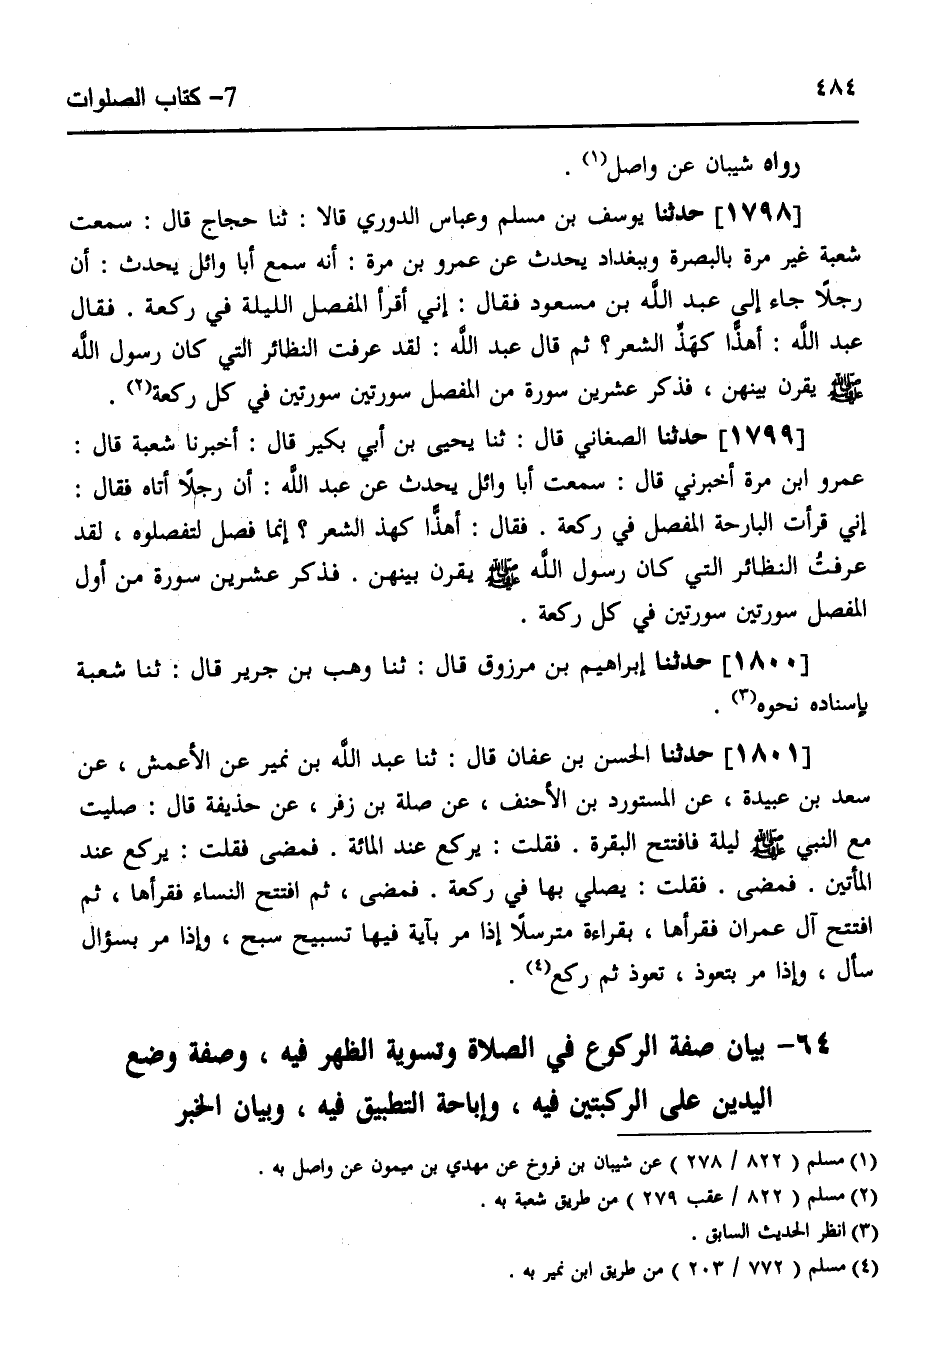 ٤٨٤
7- كتاب الصلوات
رواه شيبان عن واصل(١) .
[١٧٩٨] حدثنا يوسف بن مسلم وعباس الدوري قالا : ثنا حجاج قال : سمعت
شعبة غير مرة بالبصرة وببغداد يحدث عن عمرو بن مرة : أنه سمع أبا وائل يحدث : أن
رجلًا جاء إلى عبد اللَّه بن مسعود فقال : إني أقرأ المفصل الليلة في ركعة . فقال
عبد اللَّه : أهذًّا كهَذِّ الشعر ؟ ثم قال عبد اللَّه : لقد عرفت النظائر التي كان رسول اللَّه
ﷺ يقرن بينهن ، فذكر عشرين سورة من المفصل سورتين سورتين في كل ركعة(٢) .
[١٧٩٩] حدثنا الصغاني قال : ثنا يحيى بن أبي بكير قال : أخبرنا شعبة قال :
عمرو ابن مرة أخبرني قال : سمعت أبا وائل يحدث عن عبد اللَّه : أن رجلًا أتاه فقال :
إني قرأت البارحة المفصل في ركعة . فقال : أهذًّا كهذ الشعر ؟ إنما فصل لتفصلوه ، لقد
عرفتُ النظائر التي كان رسول اللَّه ﷺ يقرن بينهن . فذكر عشرين سورة من أول
المفصل سورتين سورتين في كل ركعة .
[١٨٠٠] حدثنا إبراهيم بن مرزوق قال : ثنا وهب بن جرير قال : ثنا شعبة
بإسناده نحوه(٣) .
[١٨٠١] حدثنا الحسن بن عفان قال : ثنا عبد اللَّه بن نمير عن الأعمش ، عن
سعد بن عبيدة ، عن المستورد بن الأحنف ، عن صلة بن زفر ، عن حذيفة قال : صليت
مع النبي ﷺ ليلة فافتتح البقرة . فقلت : يركع عند المائة . فمضى فقلت : يركع عند
المأتين . فمضى . فقلت : يصلي بها في ركعة . فمضى ، ثم افتتح النساء فقرأها ، ثم
افتتح آل عمران فقرأها ، بقراءة مترسلًا إذا مر بآية فيها تسبيح سبح ، وإذا مر بسؤال
سأل ، وإذا مر بتعوذ ، تعوذ ثم ركع(٤) .
٦٤- بيان صفة الركوع في الصلاة وتسوية الظهر فيه ، وصفة وضع
اليدين على الركبتين فيه ، وإباحة التطبيق فيه ، وبيان الخبر
(١) مسلم ( ٨٢٢ / ٢٧٨ ) عن شيبان بن فروخ عن مهدي بن ميمون عن واصل به .
(٢) مسلم ( ٨٢٢ / عقب ٢٧٩ ) من طريق شعبة به .
(٣) انظر الحديث السابق .
(٤) مسلم ( ٧٧٢ / ٢٠٣ ) من طريق ابن نمير به .